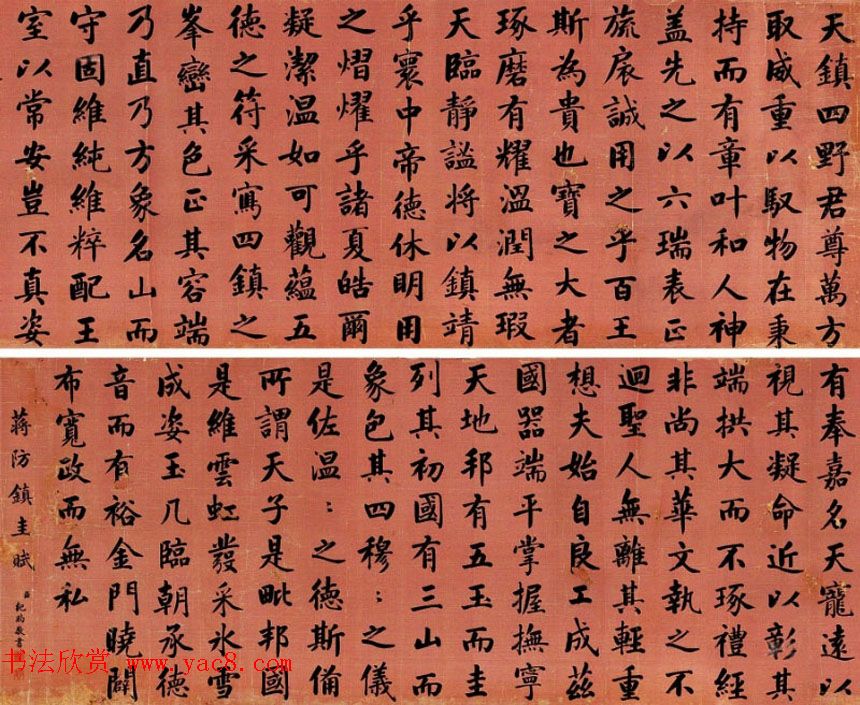 天鎮四野君尊萬方
取威重以馭物在秉
持而有章叶和人神
盖先之以六瑞表正
旒扆誠用之乎百王
斯為貴也寶之大者
琢磨有耀溫潤無瑕
天臨靜謐将以鎮靖
乎寰中帝德休明用
之熠燿乎諸夏皓爾
凝潔溫如可觀蘊五
德之符采寫四鎮之
峯巒其色正其容端
乃直乃方象名山而
守固維純維粹配王
室以常安豈不真姿
有奉嘉名天寵遠以
視其凝命近以彰其
端拱大而不琢禮經
非尚其華文執之不
迴聖人無離其輕重
想夫始自良工成茲
國器端平掌握撫寧
天地邦有五玉而圭
列其初國有三山而
象包其四穆:之儀
是佐溫:之德斯備
所謂天子是毗邦國
是維雲虹發采冰雪
成姿玉几臨朝承德
音而有裕金門曉闢
布寬政而無私
蔣防鎮圭賦
紀昀敬書
书法欣赏 www.yac8.com